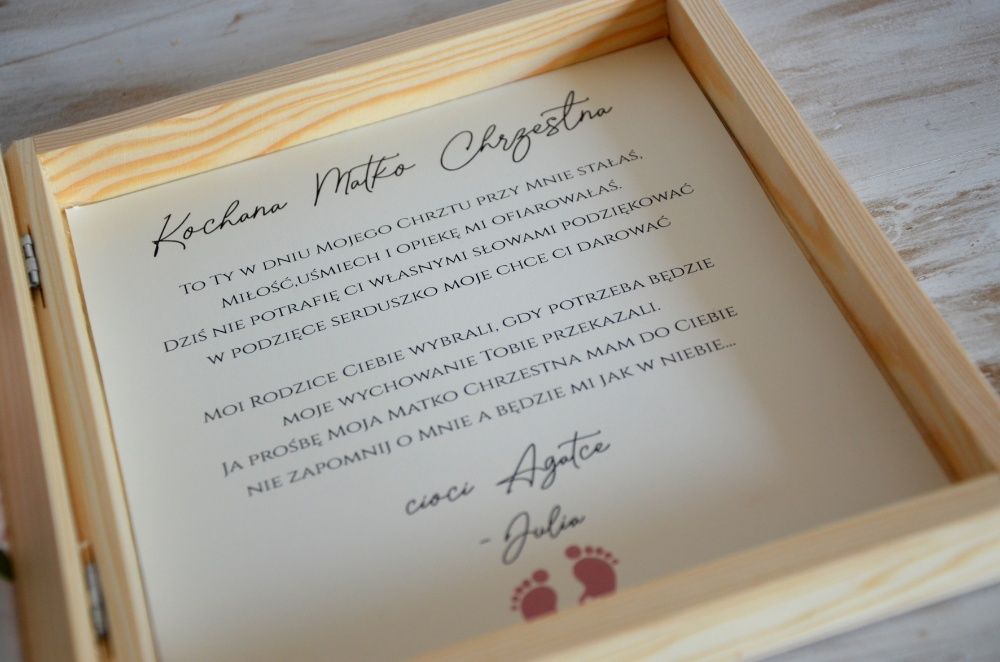 Kochana Matko Chrzestna
TO TY W DNIU MOJEGO CHRZTU PRZY MNIE STAŁAŚ,
MIŁOŚĆ,UŚMIECH I OPIEKĘ MI OFIAROWAŁAŚ.
DZIŚ NIE POTRAFIĘ CI WŁASNYMI SŁOWAMI PODZIĘKOWAĆ
W PODZIĘCE SERDUSZKO MOJE CHCE CI DAROWAĆ
MOI RODZICE CIEBIE WYBRALI, GDY POTRZEBA BĘDZIE
MOJE WYCHOWANIE TOBIE PRZEKAZALI.
JA PROŚBĘ MOJA MATKO CHRZESTNA MAM DO CIEBIE
NIE ZAPOMNIJ O MNIE A BĘDZIE MI JAK W NIEBIE...
cioci Agatce
- Julia